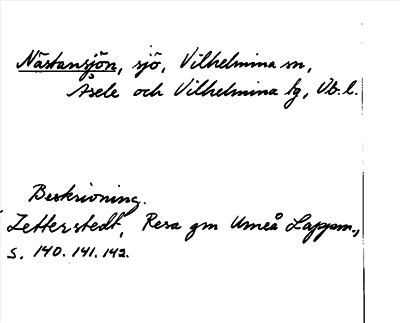 Nästansjön, sjö, Vilhelmina sn,
Åsele och Vilhelmina tg, Vb. l.
Beskrivning.
Zetterstedt, Resa gm Umeå Lappm.,
s. 140. 141. 142.